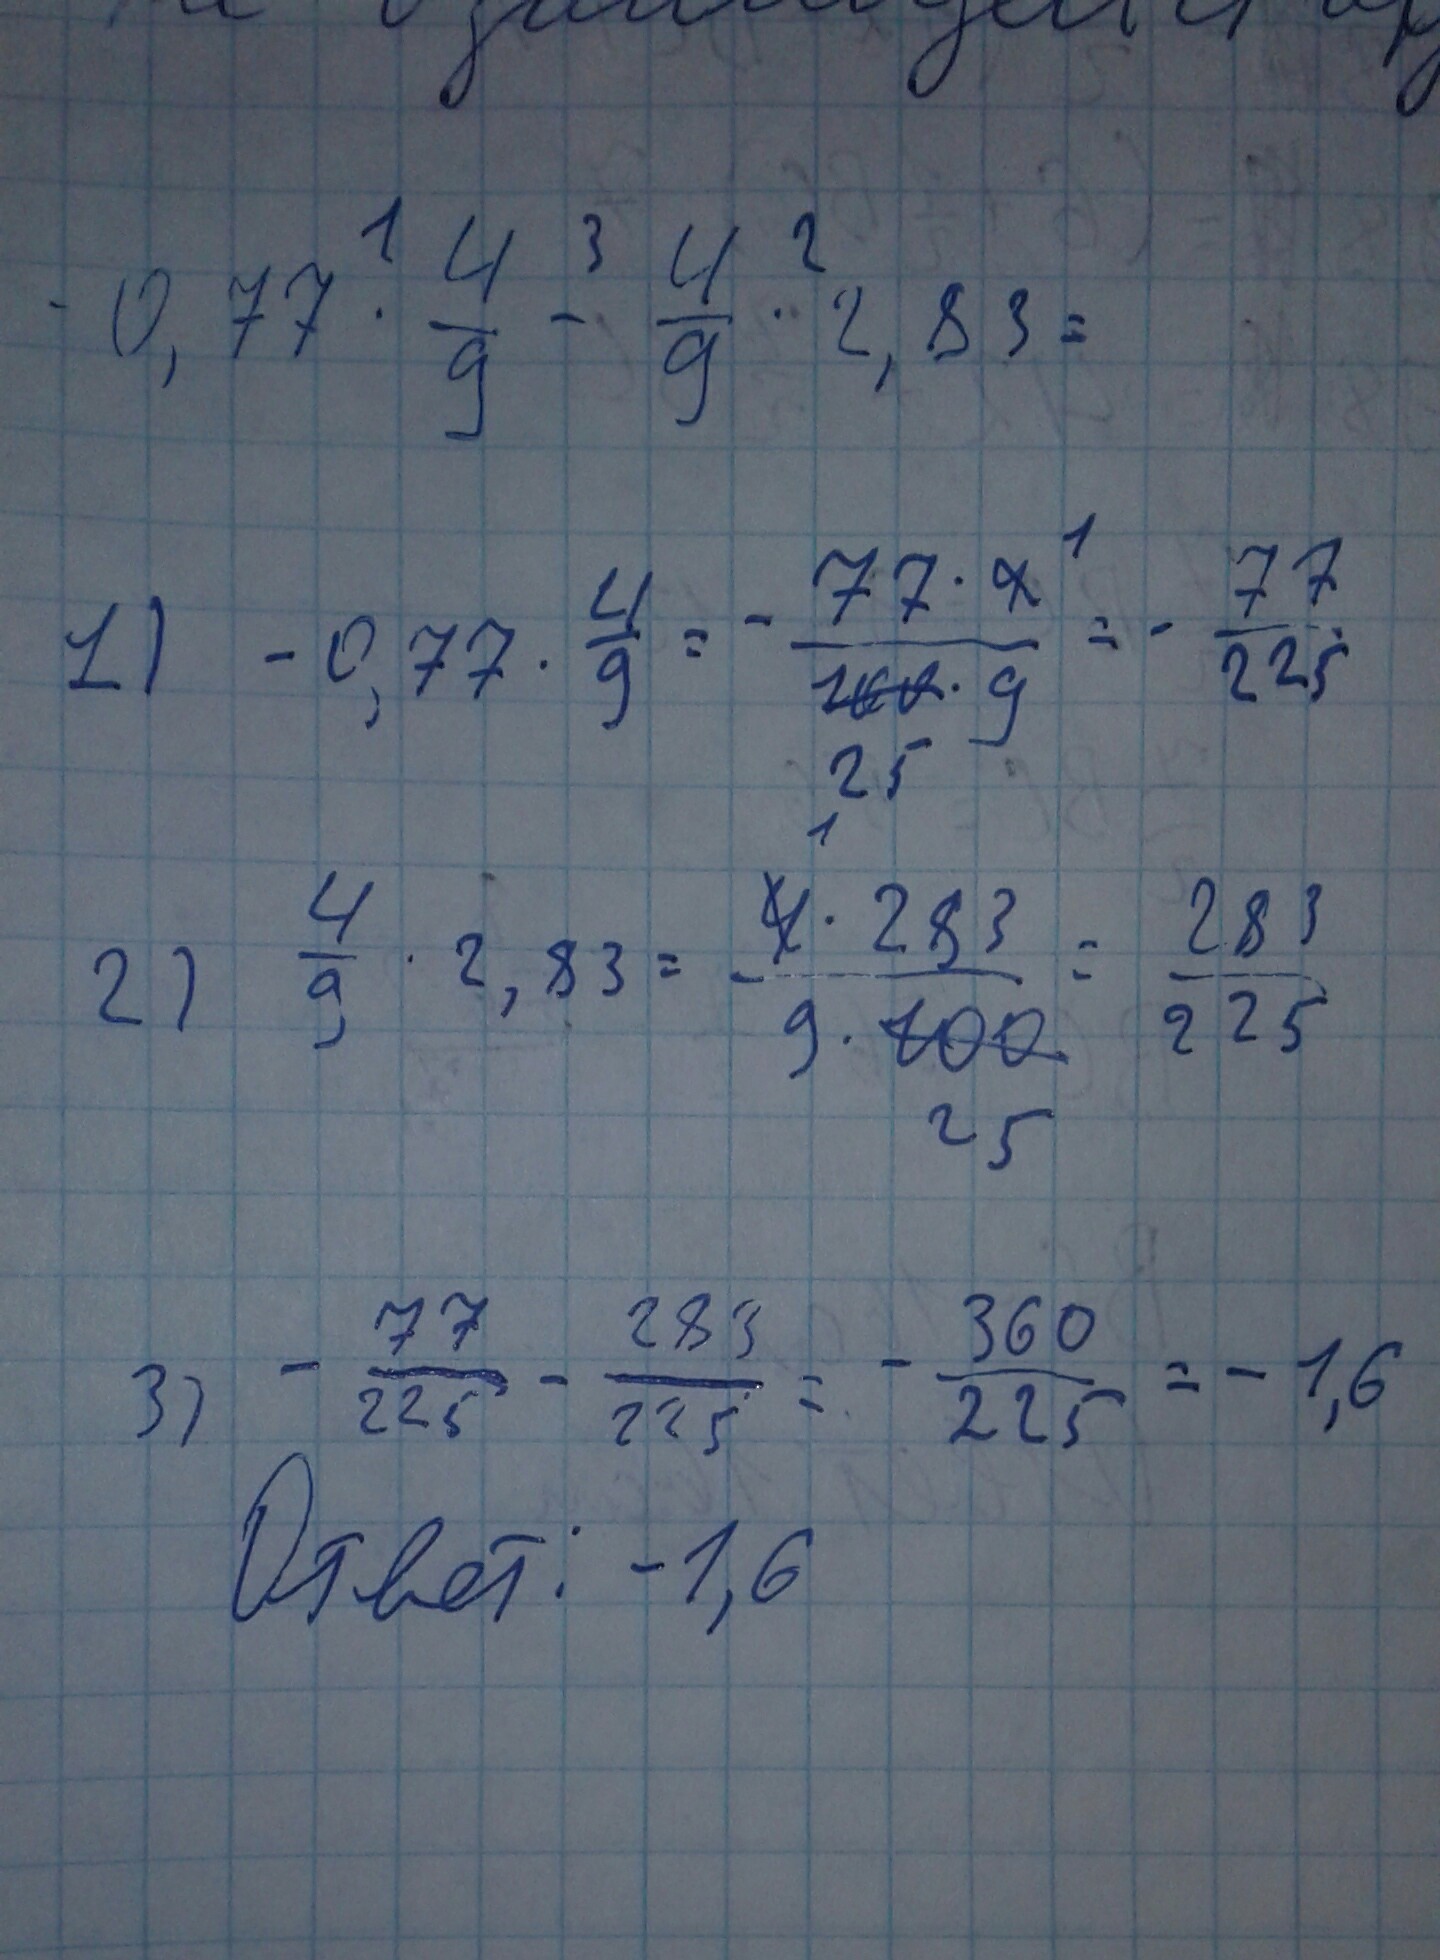 - 0,77 · 4/9 - 4/9 · 2,83 =
1) - 0,77 · 4/9 = - 77·4/100·9 = - 77/225
2) 4/9 · 2,83 = 4·283/9·100 = 283/225
3) - 77/225 - 283/225 = - 360/225 = - 1,6
Ответ: - 1,6